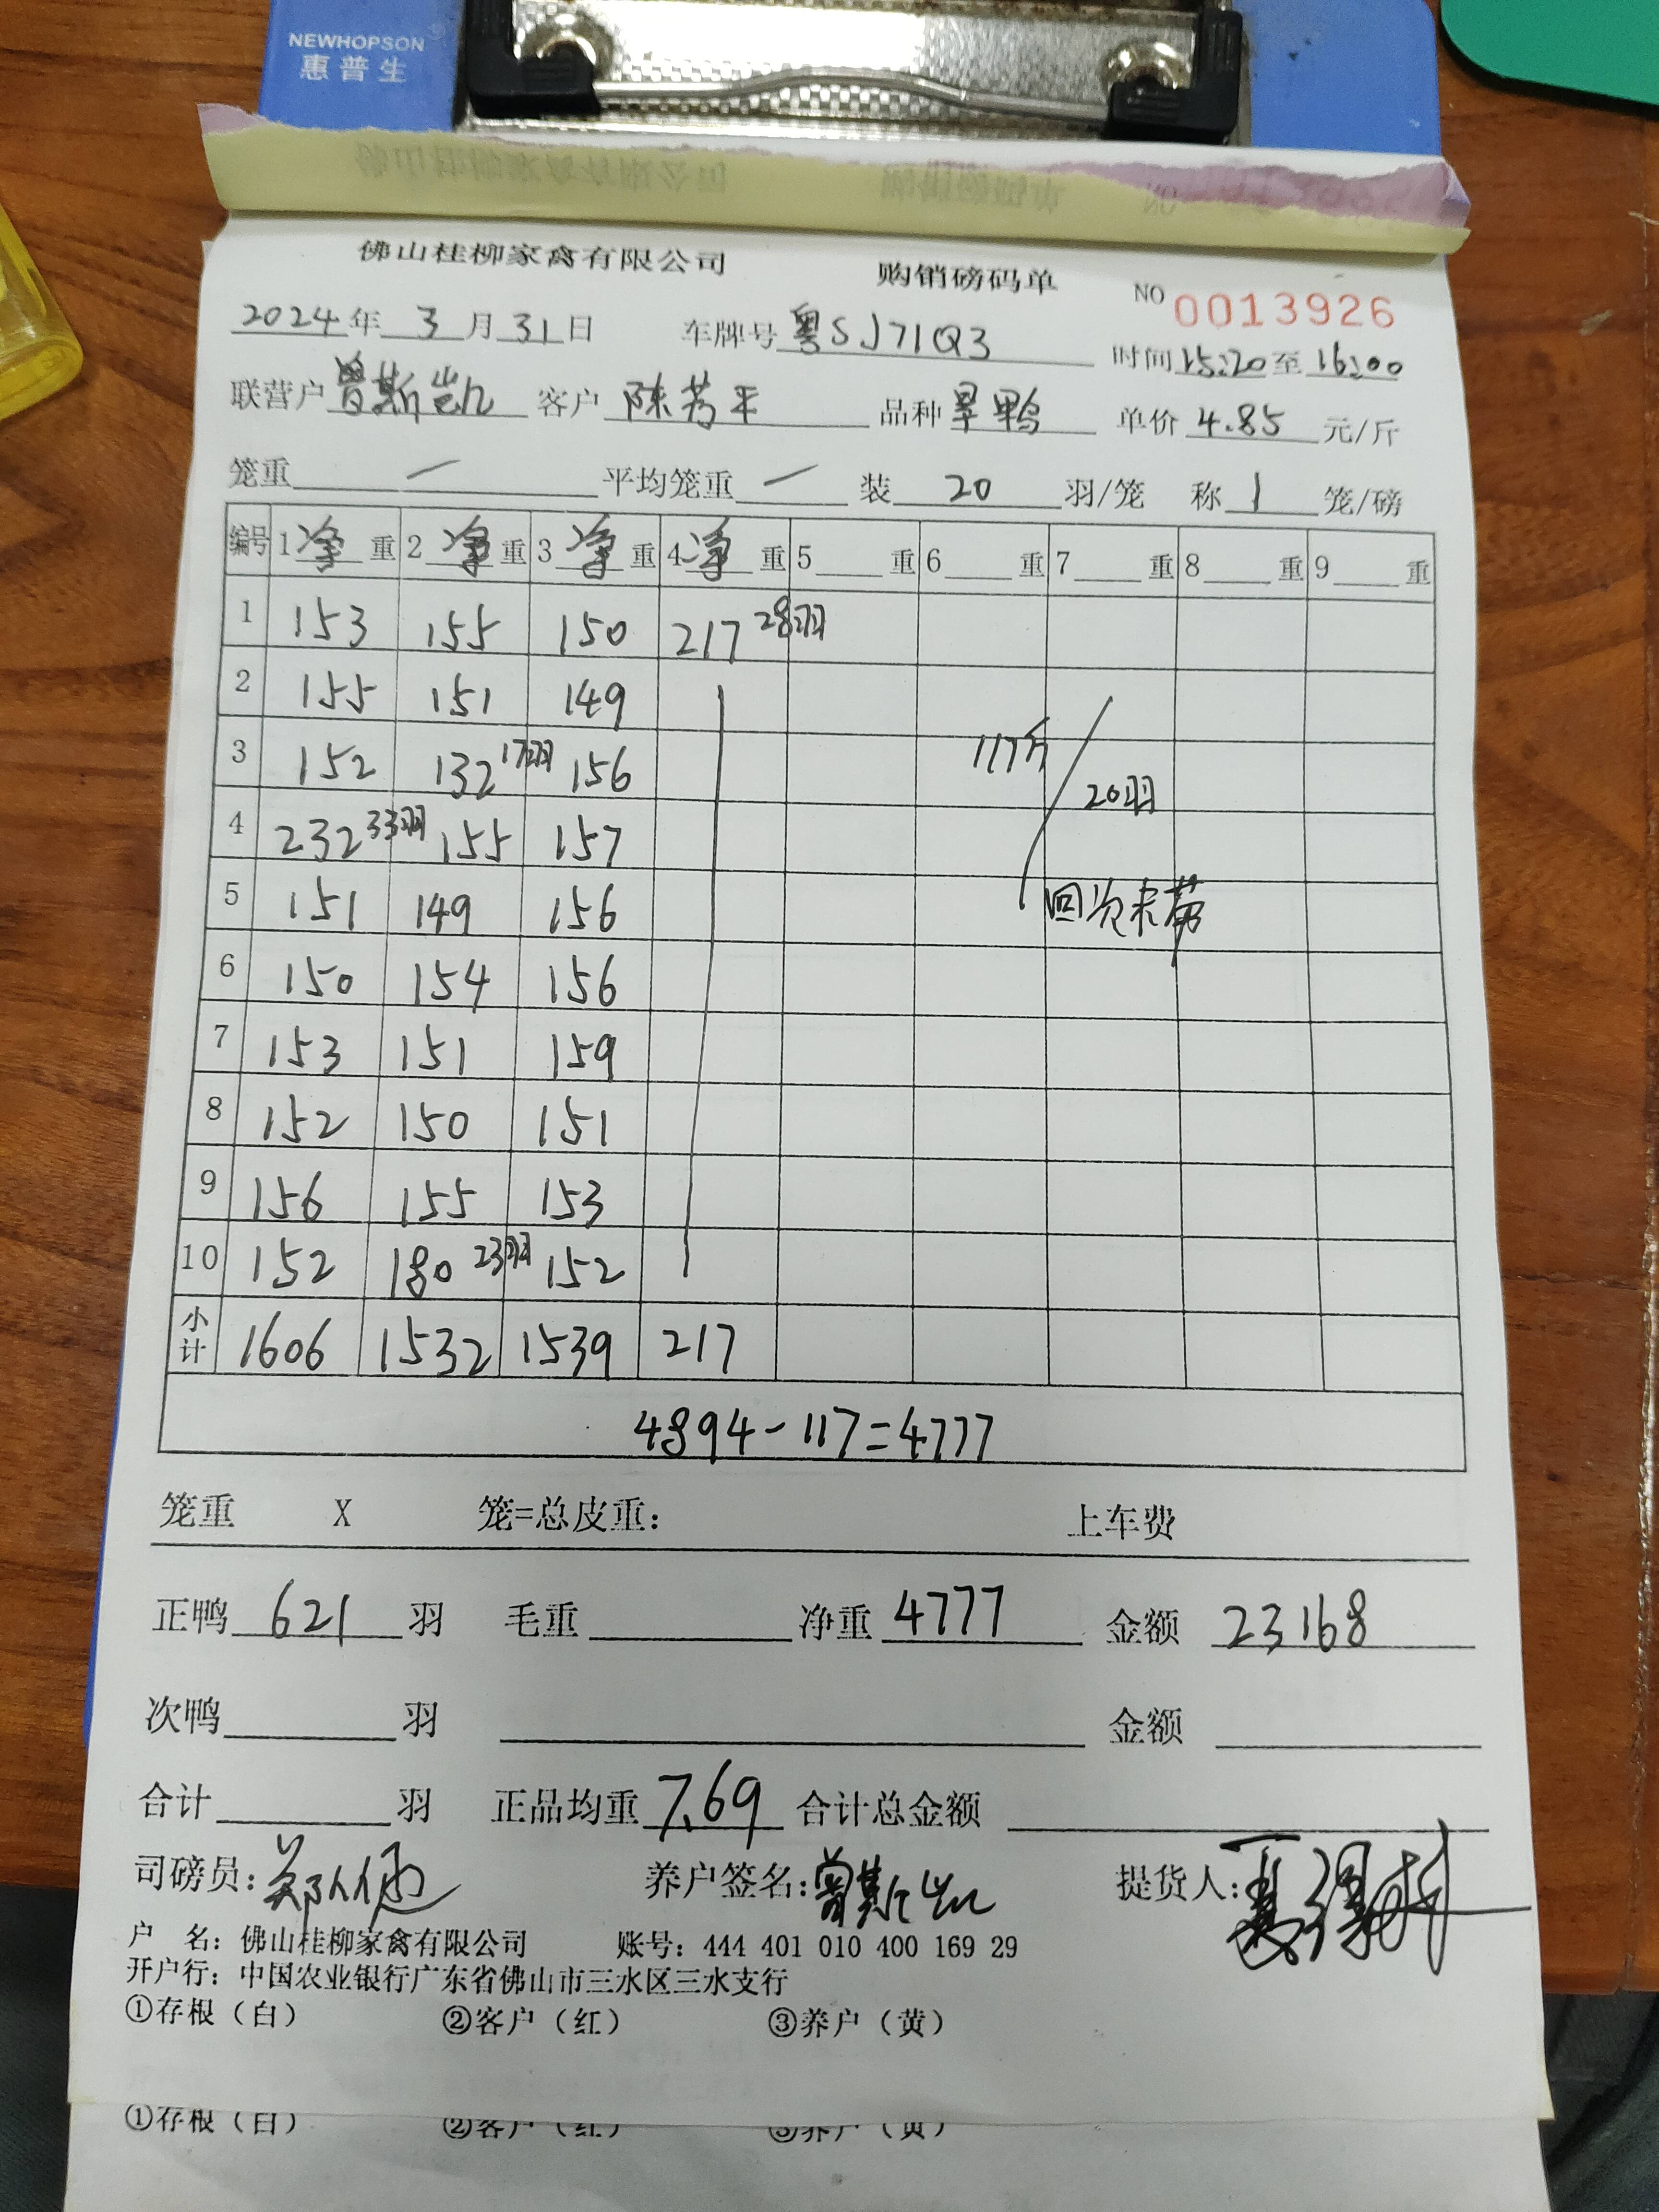 NEWHOPSON
惠普生
佛山桂柳家禽有限公司 购销磅码单 NO 0013926
2024年 3月31日 车牌号 粤SJ71Q3 时间 15:20 至 16:00
联营户 曾斯凯 客户 陈芳平 品种 旱鸭 单价 4.85 元/斤
笼重 — 平均笼重 — 装 20 羽/笼 称 1 笼/磅
编号 1 净 重 2 净 重 3 净 重 4 净 重 5 重 6 重 7 重 8 重 9 重
1 153 155 150 217 28羽
2 155 151 149
3 152 132 17羽 156 117斤 / 20羽
4 232 33羽 155 157
5 151 149 156 回次未带
6 150 154 156
7 153 151 159
8 152 150 151
9 156 155 153
10 152 180 23羽 152
小计 1606 1532 1539 217
4894-117=4777
笼重 X 笼=总皮重: 上车费
正鸭 621 羽 毛重 净重 4777 金额 23168
次鸭 羽 金额
合计 羽 正品均重 7.69 合计总金额
司磅员: 养户签名: 曾斯凯 提货人:
户 名: 佛山桂柳家禽有限公司 账号: 444 401 010 400 169 29
开户行: 中国农业银行广东省佛山市三水区三水支行
①存根（白） ②客户（红） ③养户（黄）
①存根（白） ②客户（红） ③养户（黄）